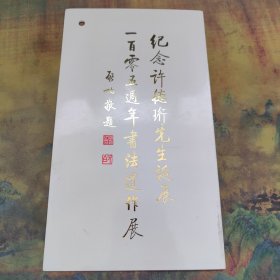 纪念许德珩先生诞辰
一百零五周年书法遗作展
启功敬题